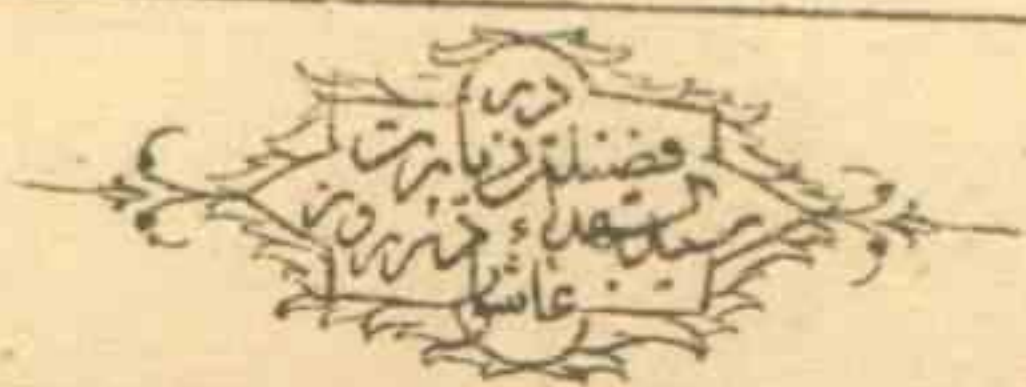 در
فضیلت زیارت
سید الشهداء در روز
عاشورا